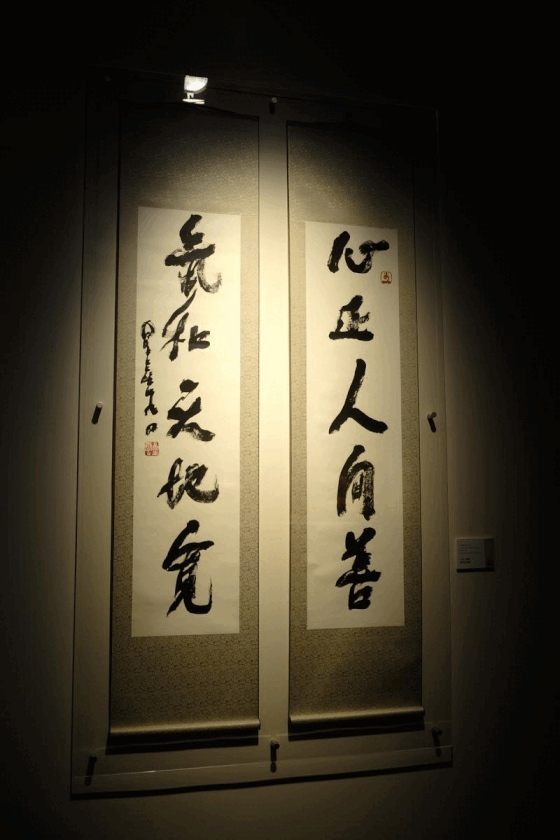 心正人向善
氣和天地寬